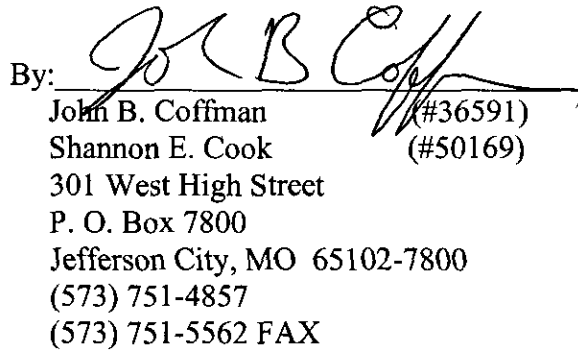 By: John B Coffman
John B. Coffman (#36591)
Shannon E. Cook (#50169)
301 West High Street
P. O. Box 7800
Jefferson City, MO 65102-7800
(573) 751-4857
(573) 751-5562 FAX